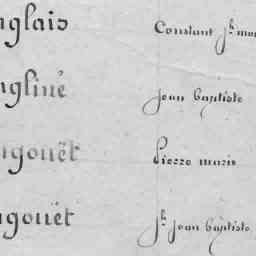 nglais Constant Jh mar
ngliné jean baptiste
ngouët Pierre marie
ngouët Jh jean baptiste